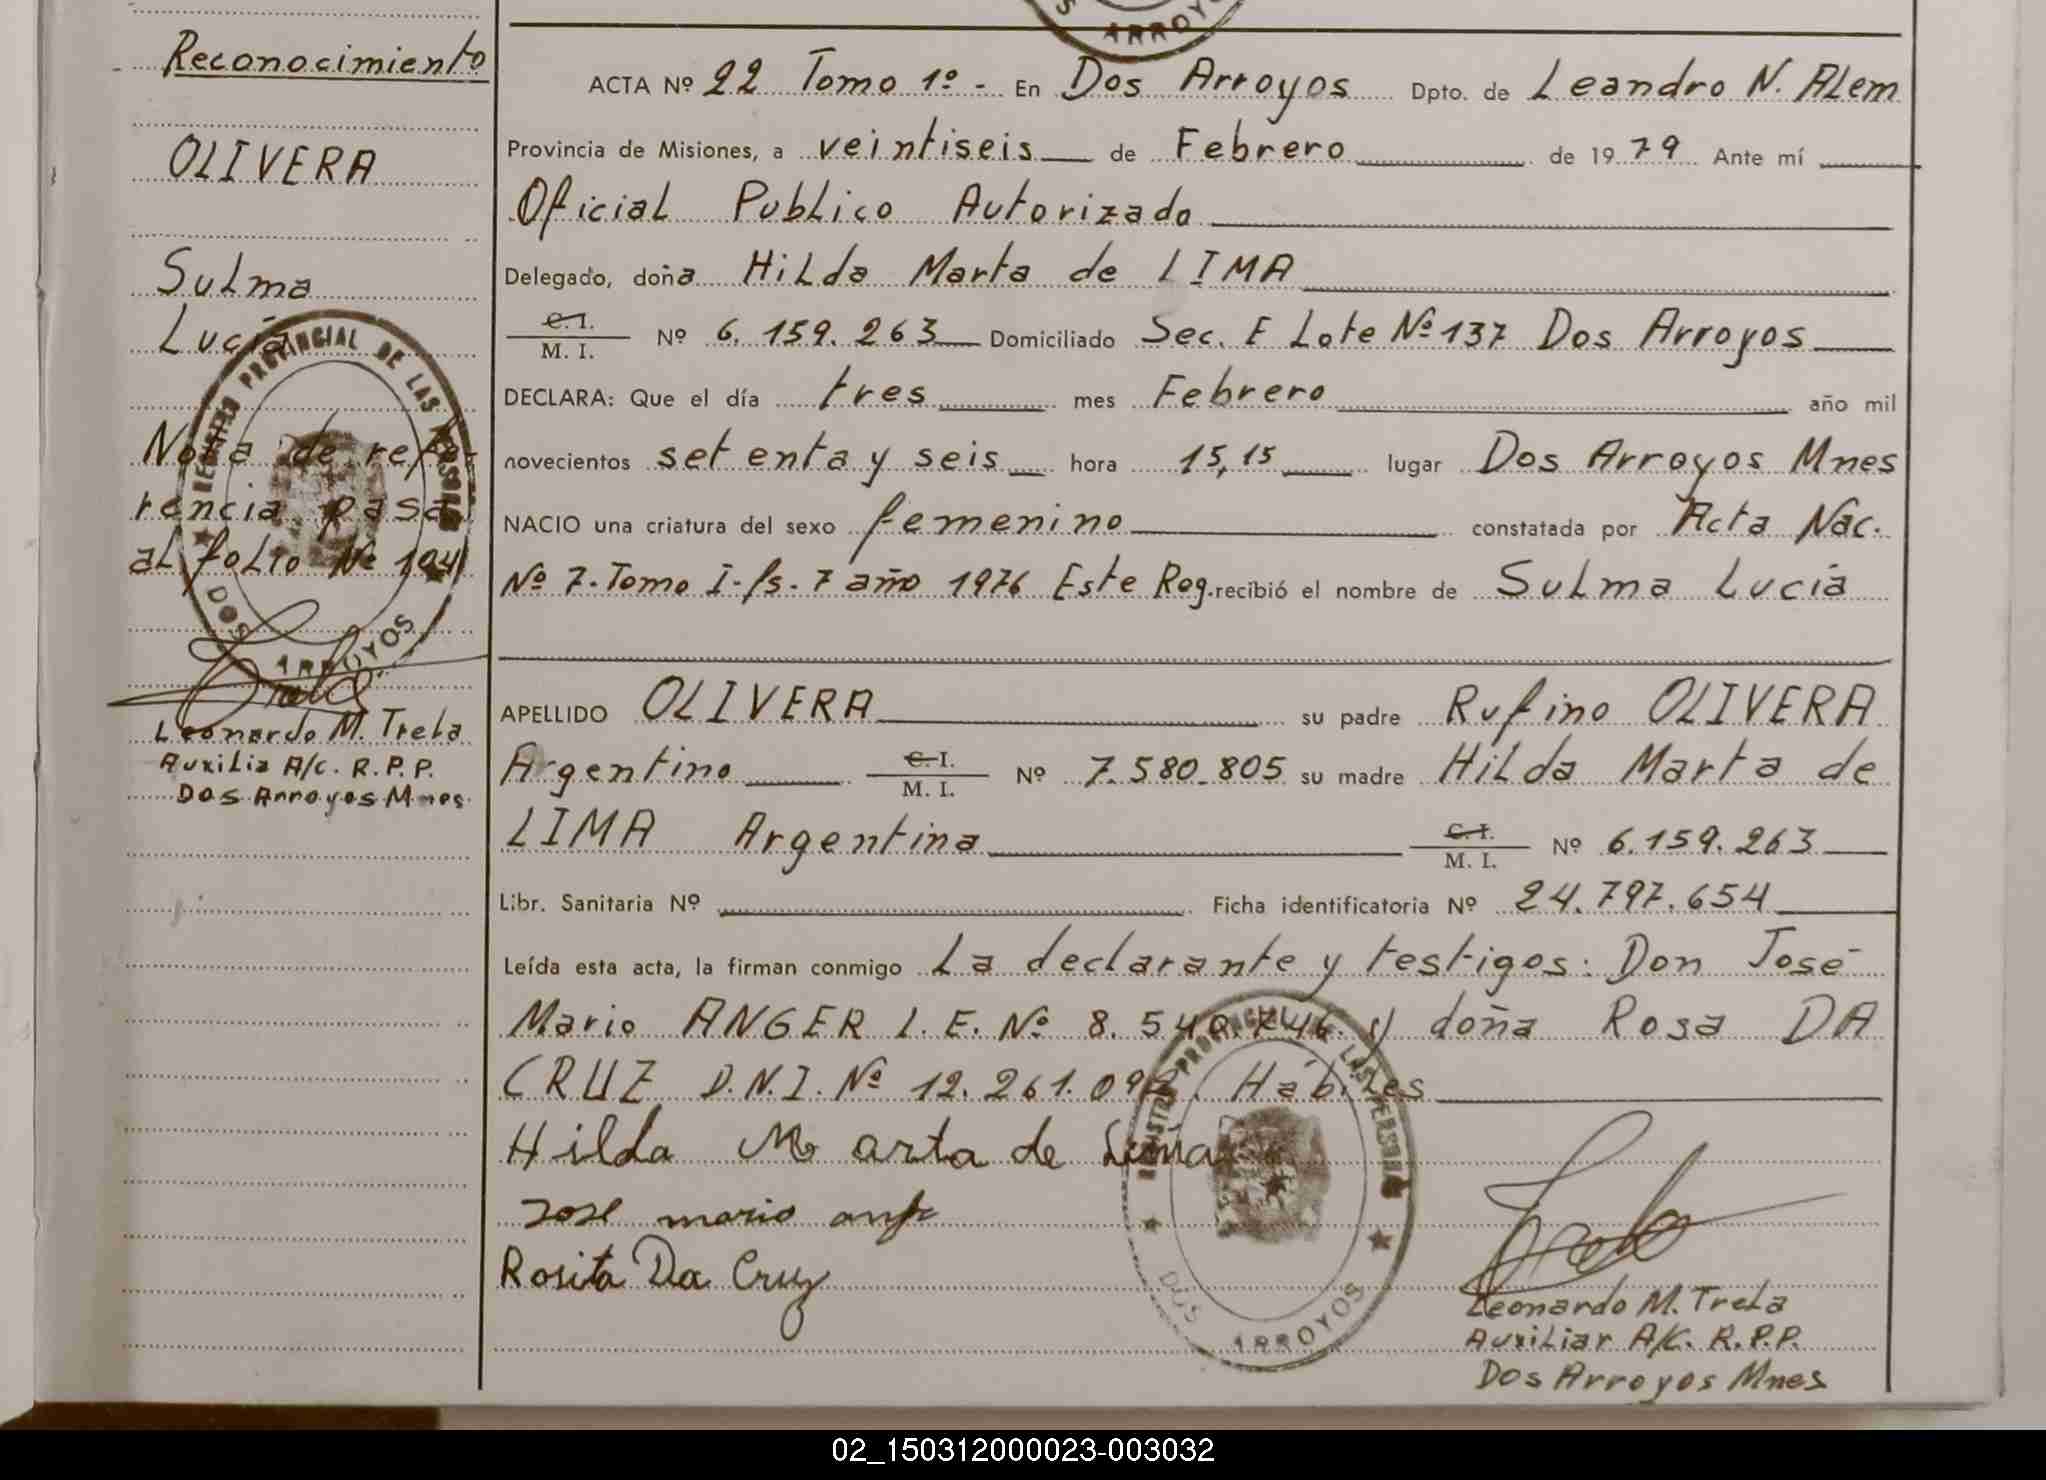 Reconocimiento
OLIVERA
Sulma
Lucía
Nota de refe-
rencia pasa
al folio Nº 194
Leonardo M. Trela
Auxilia A/C. R.P.P.
Dos Arroyos Mnes.
ARROYOS
ACTA Nº 22 Tomo 1º - En Dos Arroyos Dpto. de Leandro N. ALem
Provincia de Misiones, a veintiseis de Febrero de 1979 Ante mí
Oficial Publico Autorizado
Delegado, doña Hilda Marta de LIMA
C. I. / M. I. Nº 6.159.263 Domiciliado Sec. E Lote Nº 137 Dos Arroyos
DECLARA: Que el día tres mes Febrero año mil
novecientos setenta y seis hora 15,15 lugar Dos Arroyos Mnes
NACIO una criatura del sexo femenino constatada por Acta Nac.
Nº 7-Tomo I-fs-7 año 1976 Este Reg. recibió el nombre de Sulma Lucía
APELLIDO OLIVERA su padre Rufino OLIVERA
Argentino C. I. / M. I. Nº 7.580.805 su madre Hilda Marta de
LIMA Argentina C. I. / M. I. Nº 6.159.263
Libr. Sanitaria Nº Ficha identificatoria Nº 24.797.654
Leída esta acta, la firman conmigo La declarante y testigos: Don José
Mario ANGER L.E. Nº 8. y doña Rosa DA
CRUZ D.N.I. Nº 12.261. Hábiles
Hilda Marta de Lima
Jose mario
Rosita Da Cruz
Leonardo M. Trela
Auxiliar A/C. R.P.P.
Dos Arroyos Mnes
REGISTRO PROVINCIAL DE LAS PERSONAS
DOS ARROYOS
REGISTRO PROVINCIAL DE LAS PERSONAS
DOS ARROYOS
02_150312000023-003032